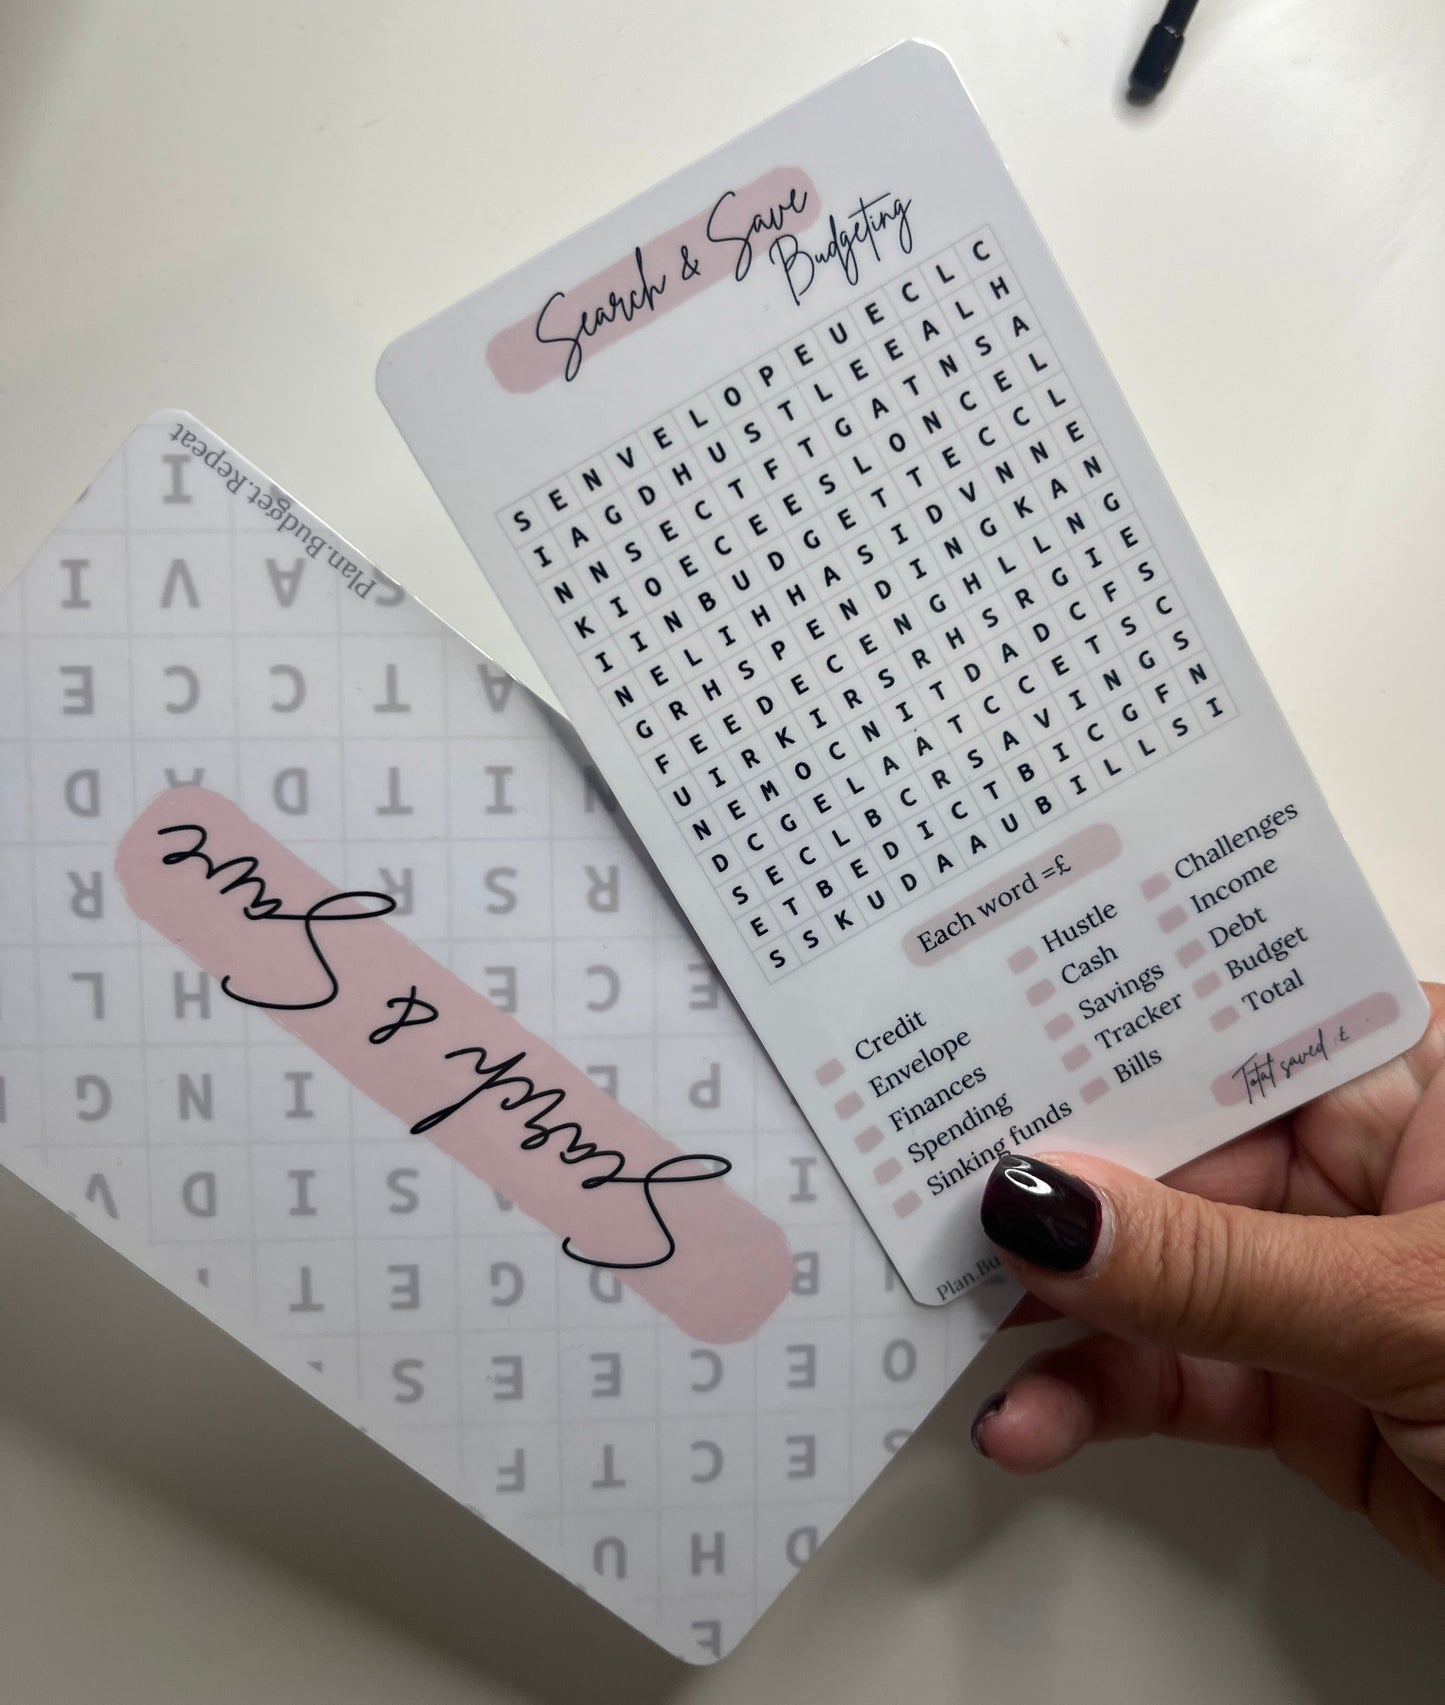 Search & Save
Budgeting
S E N V E L O P E U E C L C
I A G D H U S T L E E A L H
N N S E C T F T G A T N S A
K I O E C E E S L O N C E L
I I N B U D G E T T E C C L
N E L I H H A S I D V N N E
G R H S P E N D I N G K A N
F E E D E C E N G H L L N G
U I R K I R S R H S R G I E
N E M O C N I T D A D C F S
D C G E L A A T C C E T S C
S E C L B C R S A V I N G S
E T B E D I C T B I C G F N
S S K U D A A U B I L L S I
Each word =£
Credit
Envelope
Finances
Spending
Sinking funds
Hustle
Cash
Savings
Tracker
Bills
Challenges
Income
Debt
Budget
Total
Total saved £
Plan.Bu
Search & Save
E
D H U
S E C T F
O E C E E S
B D G E T
I S I D V
P E I N G
E C E H L
R S R R
N I T D A D
A T C C E
S A V I
I
Plan.Budget.Repeat